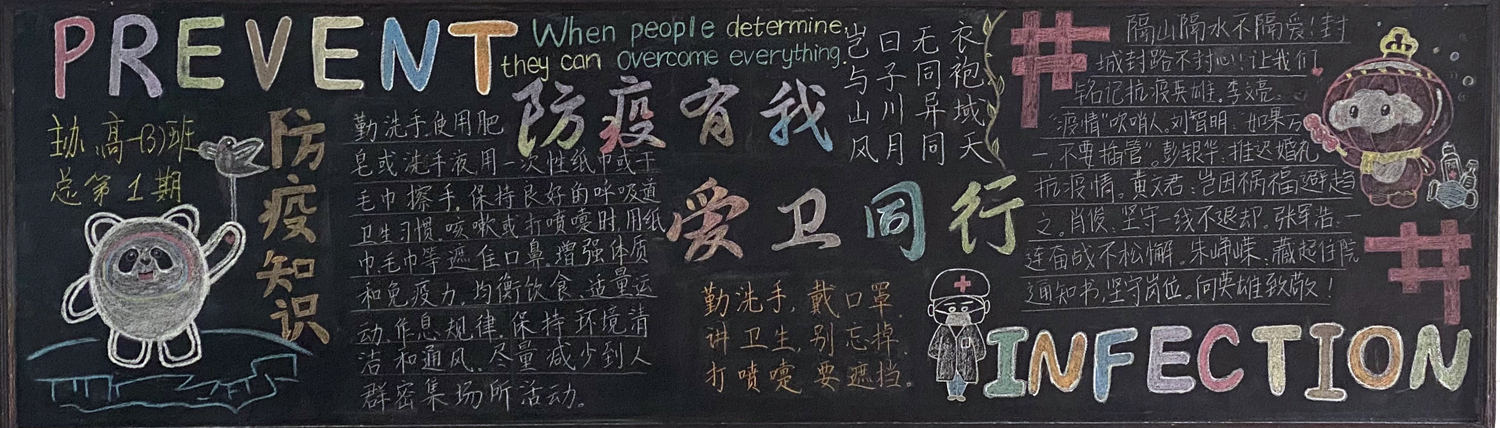 PREVENT
When people determine,
they can overcome everything.
主办:高一(3)班
总第1期
防疫知识
勤洗手,使用肥
皂或洗手液,用一次性纸巾或干
毛巾擦手,保持良好的呼吸道
卫生习惯,咳嗽或打喷嚏时,用纸
巾、毛巾等遮住口鼻,增强体质
和免疫力,均衡饮食、适量运
动、作息规律,保持环境清
洁和通风,尽量减少到人
群密集场所活动。
防疫有我
爱卫同行
岂曰无衣
与子同袍
山川异域
风月同天
勤洗手,戴口罩,
讲卫生,别忘掉,
打喷嚏要遮挡。
隔山隔水不隔爱!封
城封路不封心!让我们
铭记抗疫英雄。李文亮:
"疫情"吹哨人。刘智明:"如果万
一,不要插管"。彭银华:推迟婚礼
抗疫情。黄文君:岂因祸福避趋
之。肖俊:坚守一线不退却。张军浩:一
连奋战不松懈。朱峥嵘:藏起住院
通知书,坚守岗位。向英雄致敬!
INFECTION